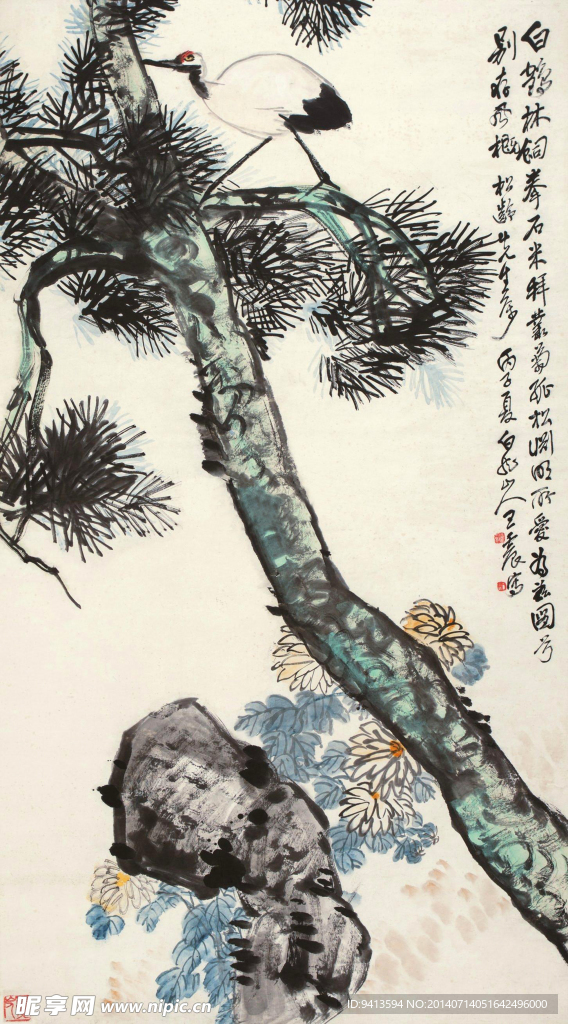 白鶴林飼拳石米拜叢菊孤松淵明所愛為茲圖兮
別存風概 松齡先生屬 丙子夏白龍山人王震寫
昵享网 www.nipic.cn
ID:9413594 NO:20140714051642496000